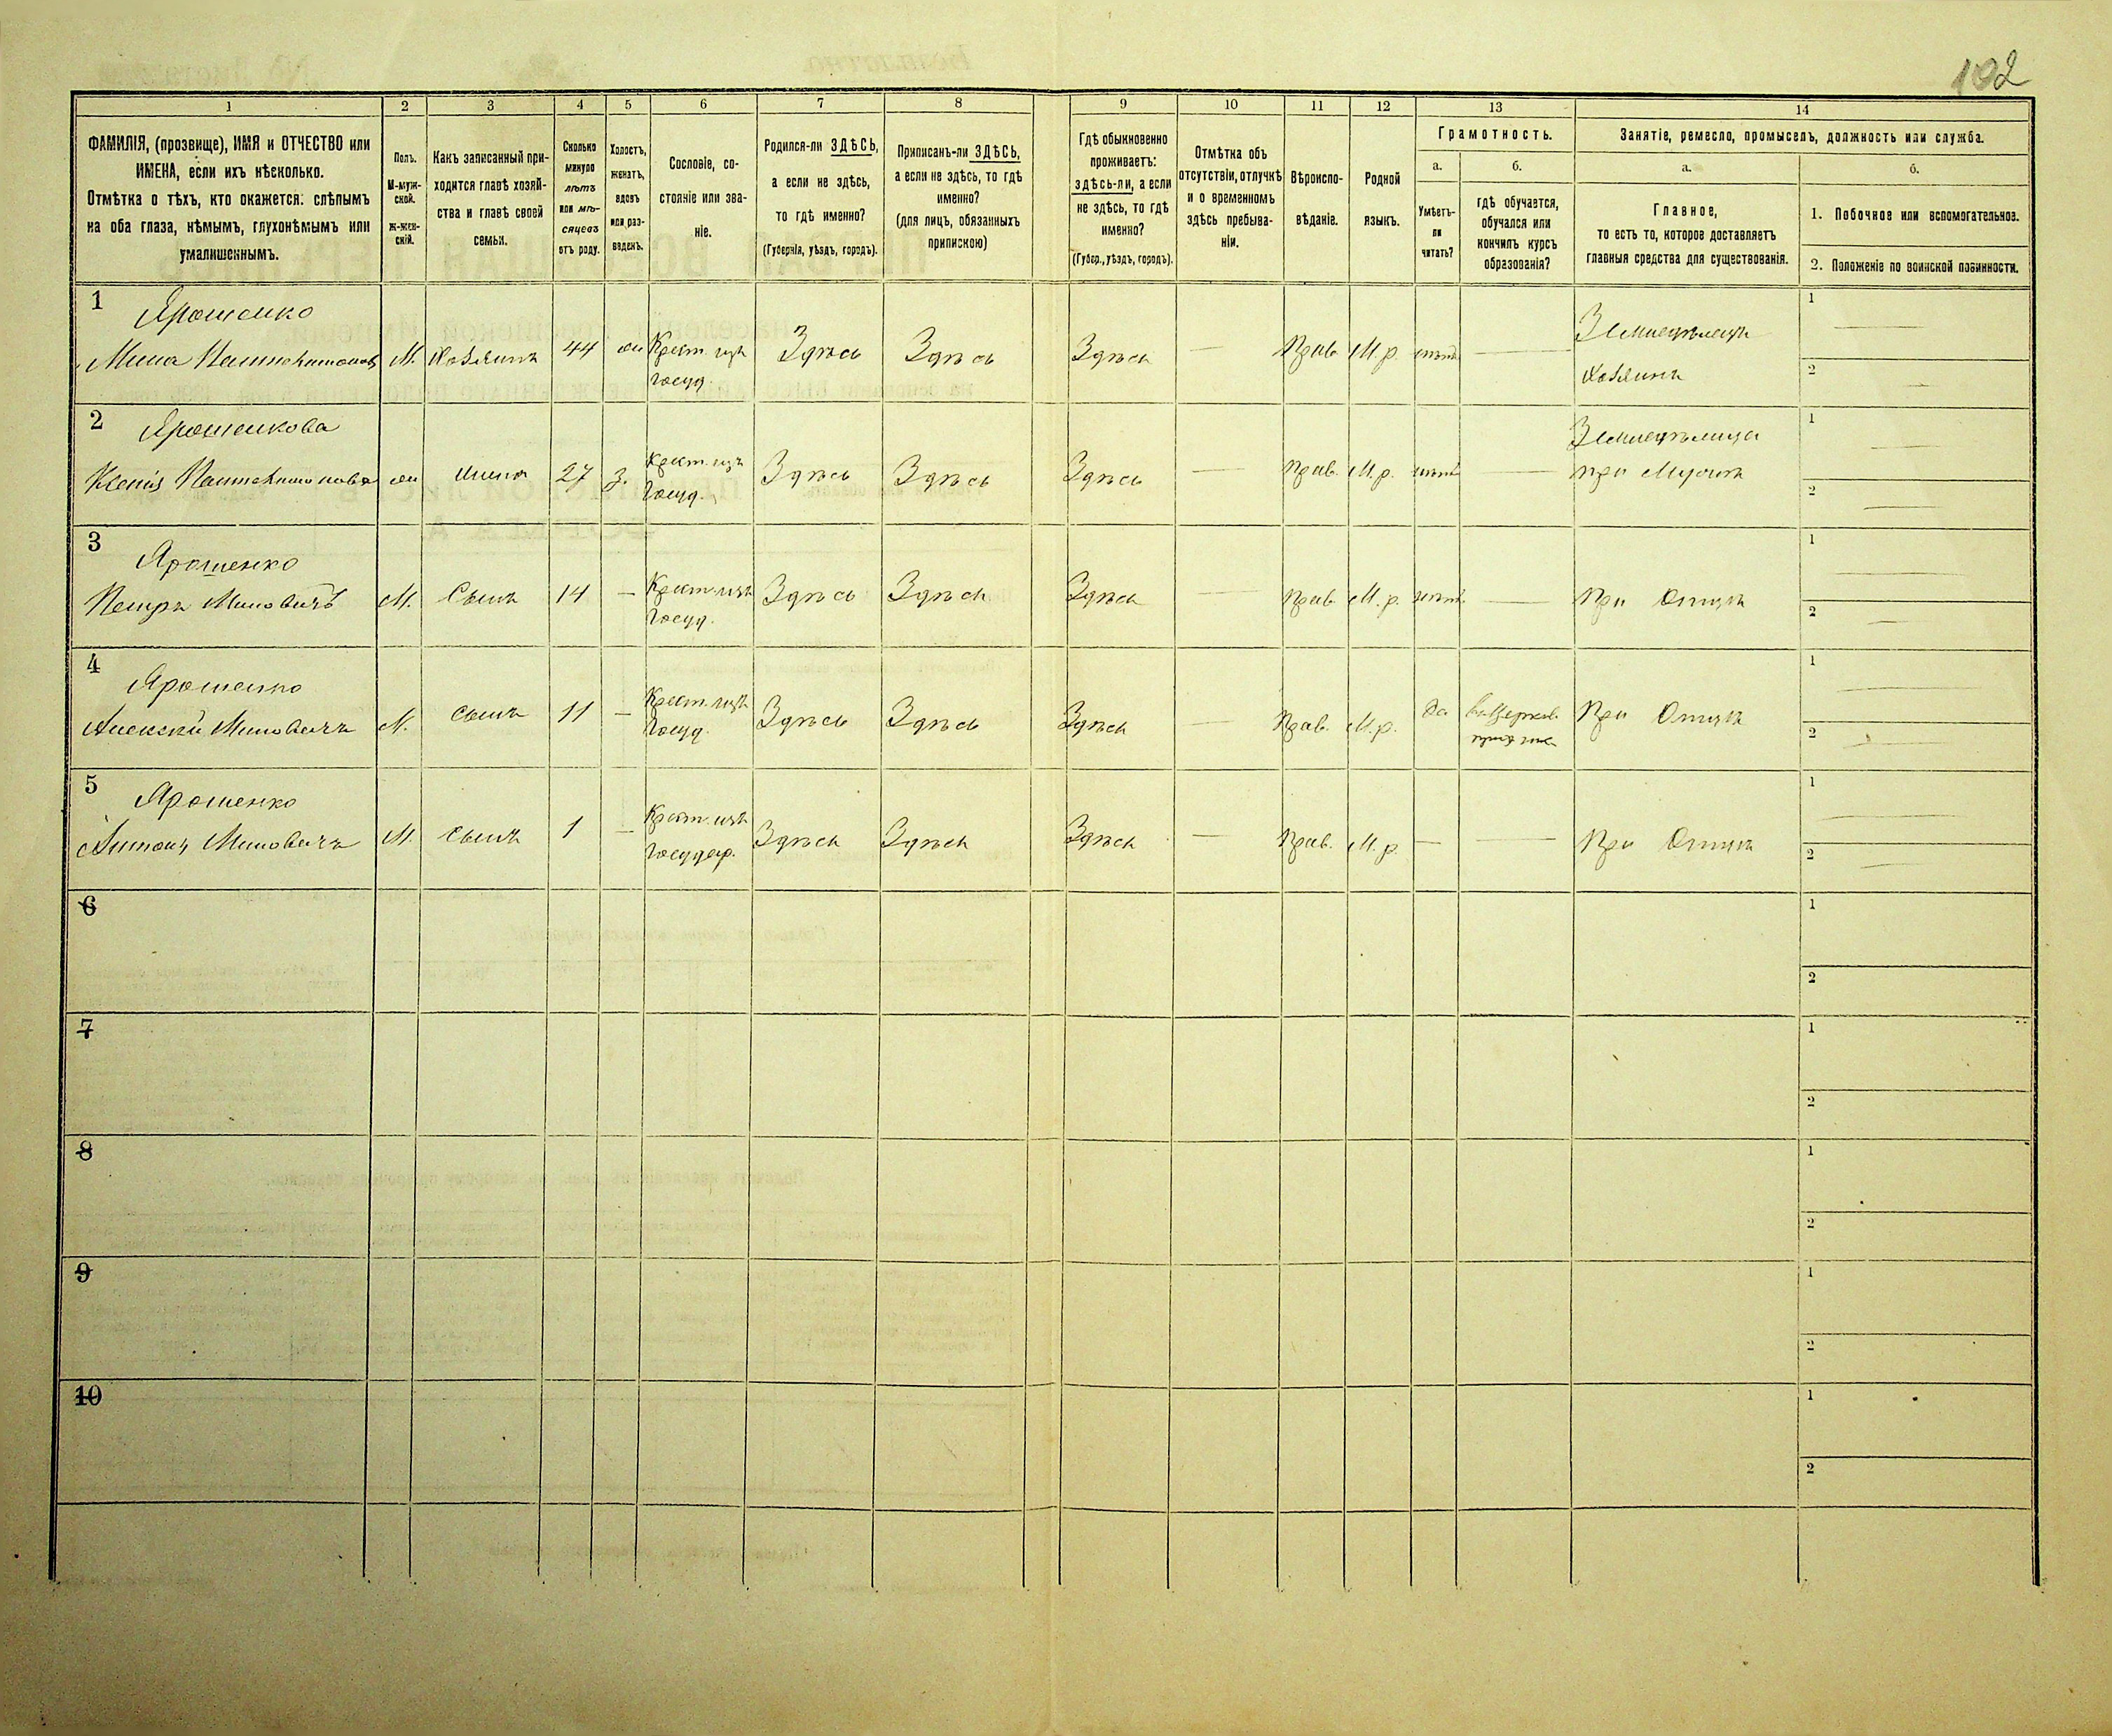 102
1 2 3 4 5 6 7 8 9 10 11 12 13 14
ФАМИЛІЯ, (прозвище), ИМЯ и ОТЧЕСТВО или
ИМЕНА, если ихъ нѣсколько.
Отмѣтка о тѣхъ, кто окажется: слѣпымъ
на оба глаза, нѣмымъ, глухонѣмымъ или
умалишеннымъ.
Полъ.
М-муж-
ской.
ж-жен-
скій.
Какъ записанный при-
ходится главѣ хозяй-
ства и главѣ своей
семьи.
Сколько
минуло
лѣтъ
или мѣ-
сяцевъ
отъ роду.
Холостъ,
женатъ,
вдовъ
или раз-
веденъ.
Сословіе, со-
стояніе или зва-
ніе.
Родился-ли ЗДѢСЬ,
а если не здѣсь,
то гдѣ именно?
(Губернія, уѣздъ, городъ).
Приписанъ-ли ЗДѢСЬ,
а если не здѣсь, то гдѣ
именно?
(для лицъ, обязанныхъ
припискою)
Гдѣ обыкновенно
проживаетъ:
здѣсь-ли, а если
не здѣсь, то гдѣ
именно?
(Губер., уѣздъ, городъ).
Отмѣтка объ
отсутствіи, отлучкѣ
и о временномъ
здѣсь пребыва-
ніи.
Вѣроиспо-
вѣданіе.
Родной
языкъ.
Грамотность.
а.
Умѣетъ-
ли
читать?
б.
гдѣ обучается,
обучался или
кончилъ курсъ
образованія?
Занятіе, ремесло, промыселъ, должность или служба.
а.
Главное,
то есть то, которое доставляетъ
главныя средства для существованія.
б.
1. Побочное или вспомогательное.
2. Положеніе по воинской повинности.
1
Ярошенко
Мина
М. Хозяинъ 44 Крест. изъ
госуд.
Здѣсь Здѣсь Здѣсь — Прав. М.р. —
Земледѣлецъ
Хозяинъ
1 —
2 —
2
Ярошенкова
Ксенія
жена 27 З. Крест. изъ
госуд.
Здѣсь Здѣсь Здѣсь — Прав. М.р. —
при Мужѣ
1 —
2 —
3
Ярошенко
Петръ Миновичъ
М. Сынъ 14 — Крест. изъ
госуд.
Здѣсь Здѣсь Здѣсь — Прав. М.р. —
При Отцѣ
1 —
2 —
4
Ярошенко
Алексѣй Миновичъ
М. Сынъ 11 — Крест. изъ
госуд.
Здѣсь Здѣсь Здѣсь — Прав. М.р. да
При Отцѣ
1 —
2 —
5
Ярошенко
Антонъ Миновичъ
М. Сынъ 1 — Крест. изъ
государ.
Здѣсь Здѣсь Здѣсь — Прав. М.р. — —
При Отцѣ
1 —
2 —
6
1
2
7
1
2
8
1
2
9
1
2
10
1
2